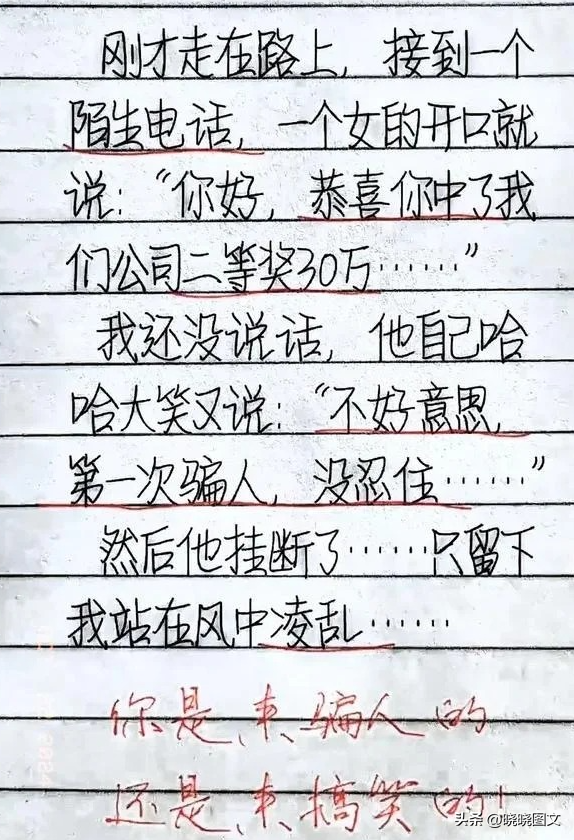 刚才走在路上，接到一个
陌生电话，一个女的开口就
说：“你好，恭喜你中了我
们公司二等奖30万……”
我还没说话，他自己哈
哈大笑又说：“不好意思，
第一次骗人，没忍住……”
然后他挂断了……只留下
我站在风中凌乱……
你是来骗人的
还是来搞笑的！
头条 @晓晓图文